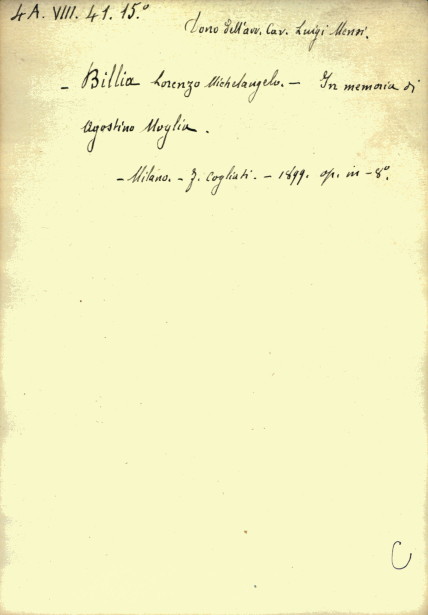 4A. VIII. 41. 15.°
Dono dell'avv. Cav. Luigi Mensi.
- Billia Lorenzo Michelangelo. - In memoria di
Agostino Moglia.
- Milano. - F. Cogliati. - 1899. op. in - 8°.
C